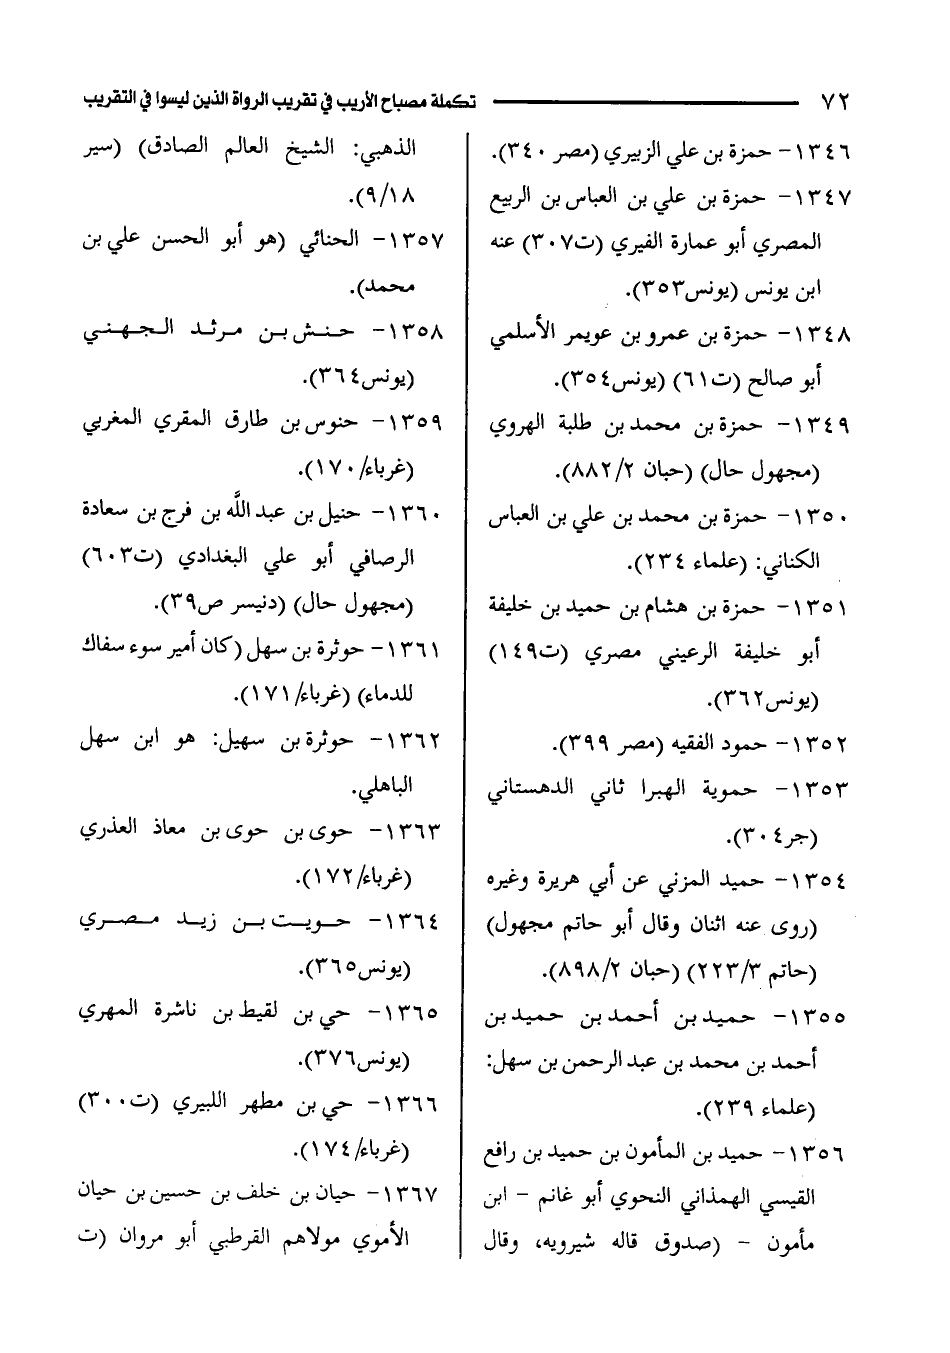 ٧٢ تكملة مصباح الأريب في تقريب الرواة الذين ليسوا في التقريب
١٣٤٦- حمزة بن علي الزبيري (مصر ٣٤٠).
١٣٤٧- حمزة بن علي بن العباس بن الربيع
المصري أبو عمارة الفيري (ت٣٠٧) عنه
ابن يونس (يونس٣٥٣).
١٣٤٨- حمزة بن عمرو بن عويمر الأسلمي
أبو صالح (ت٦١) (يونس٣٥٤).
١٣٤٩- حمزة بن محمد بن طلبة الهروي
(مجهول حال) (حبان ٨٨٢/٢).
١٣٥٠- حمزة بن محمد بن علي بن العباس
الكناني: (علماء ٢٣٤).
١٣٥١- حمزة بن هشام بن حميد بن خليفة
أبو خليفة الرعيني مصري (ت١٤٩)
(يونس٣٦٢).
١٣٥٢- حمود الفقيه (مصر ٣٩٩).
١٣٥٣- حموية الهبرا ثاني الدهستاني
(جر٣٠٤).
١٣٥٤- حميد المزني عن أبي هريرة وغيره
(روى عنه اثنان وقال أبو حاتم مجهول)
(حاتم ٢٢٣/٣) (حبان ٨٩٨/٢).
١٣٥٥- حميد بن أحمد بن حميد بن
أحمد بن محمد بن عبد الرحمن بن سهل:
(علماء ٢٣٩).
١٣٥٦- حميد بن المأمون بن حميد بن رافع
القيسي الهمذاني النحوي أبو غانم - ابن
مأمون - (صدوق قاله شيرويه، وقال
الذهبي: الشيخ العالم الصادق) (سير
٩/١٨).
١٣٥٧- الحنائي (هو أبو الحسن علي بن
محمد).
١٣٥٨- حنش بن مرثد الجهني
(يونس٣٦٤).
١٣٥٩- حنوس بن طارق المقري المغربي
(غرباء/١٧٠).
١٣٦٠- حنيل بن عبد اللَّه بن فرج بن سعادة
الرصافي أبو علي البغدادي (ت٦٠٣)
(مجهول حال) (دنيسر ص٣٩).
١٣٦١- حوثرة بن سهل (كان أمير سوء سفاك
للدماء) (غرباء/١٧١).
١٣٦٢- حوثرة بن سهيل: هو ابن سهل
الباهلي.
١٣٦٣- حوى بن حوى بن معاذ العذري
(غرباء/١٧٢).
١٣٦٤- حويت بن زيد مصري
(يونس٣٦٥).
١٣٦٥- حي بن لقيط بن ناشرة المهري
(يونس٣٧٦).
١٣٦٦- حي بن مطهر اللبيري (ت٣٠٠)
(غرباء/١٧٤).
١٣٦٧- حيان بن خلف بن حسين بن حيان
الأموي مولاهم القرطبي أبو مروان (ت